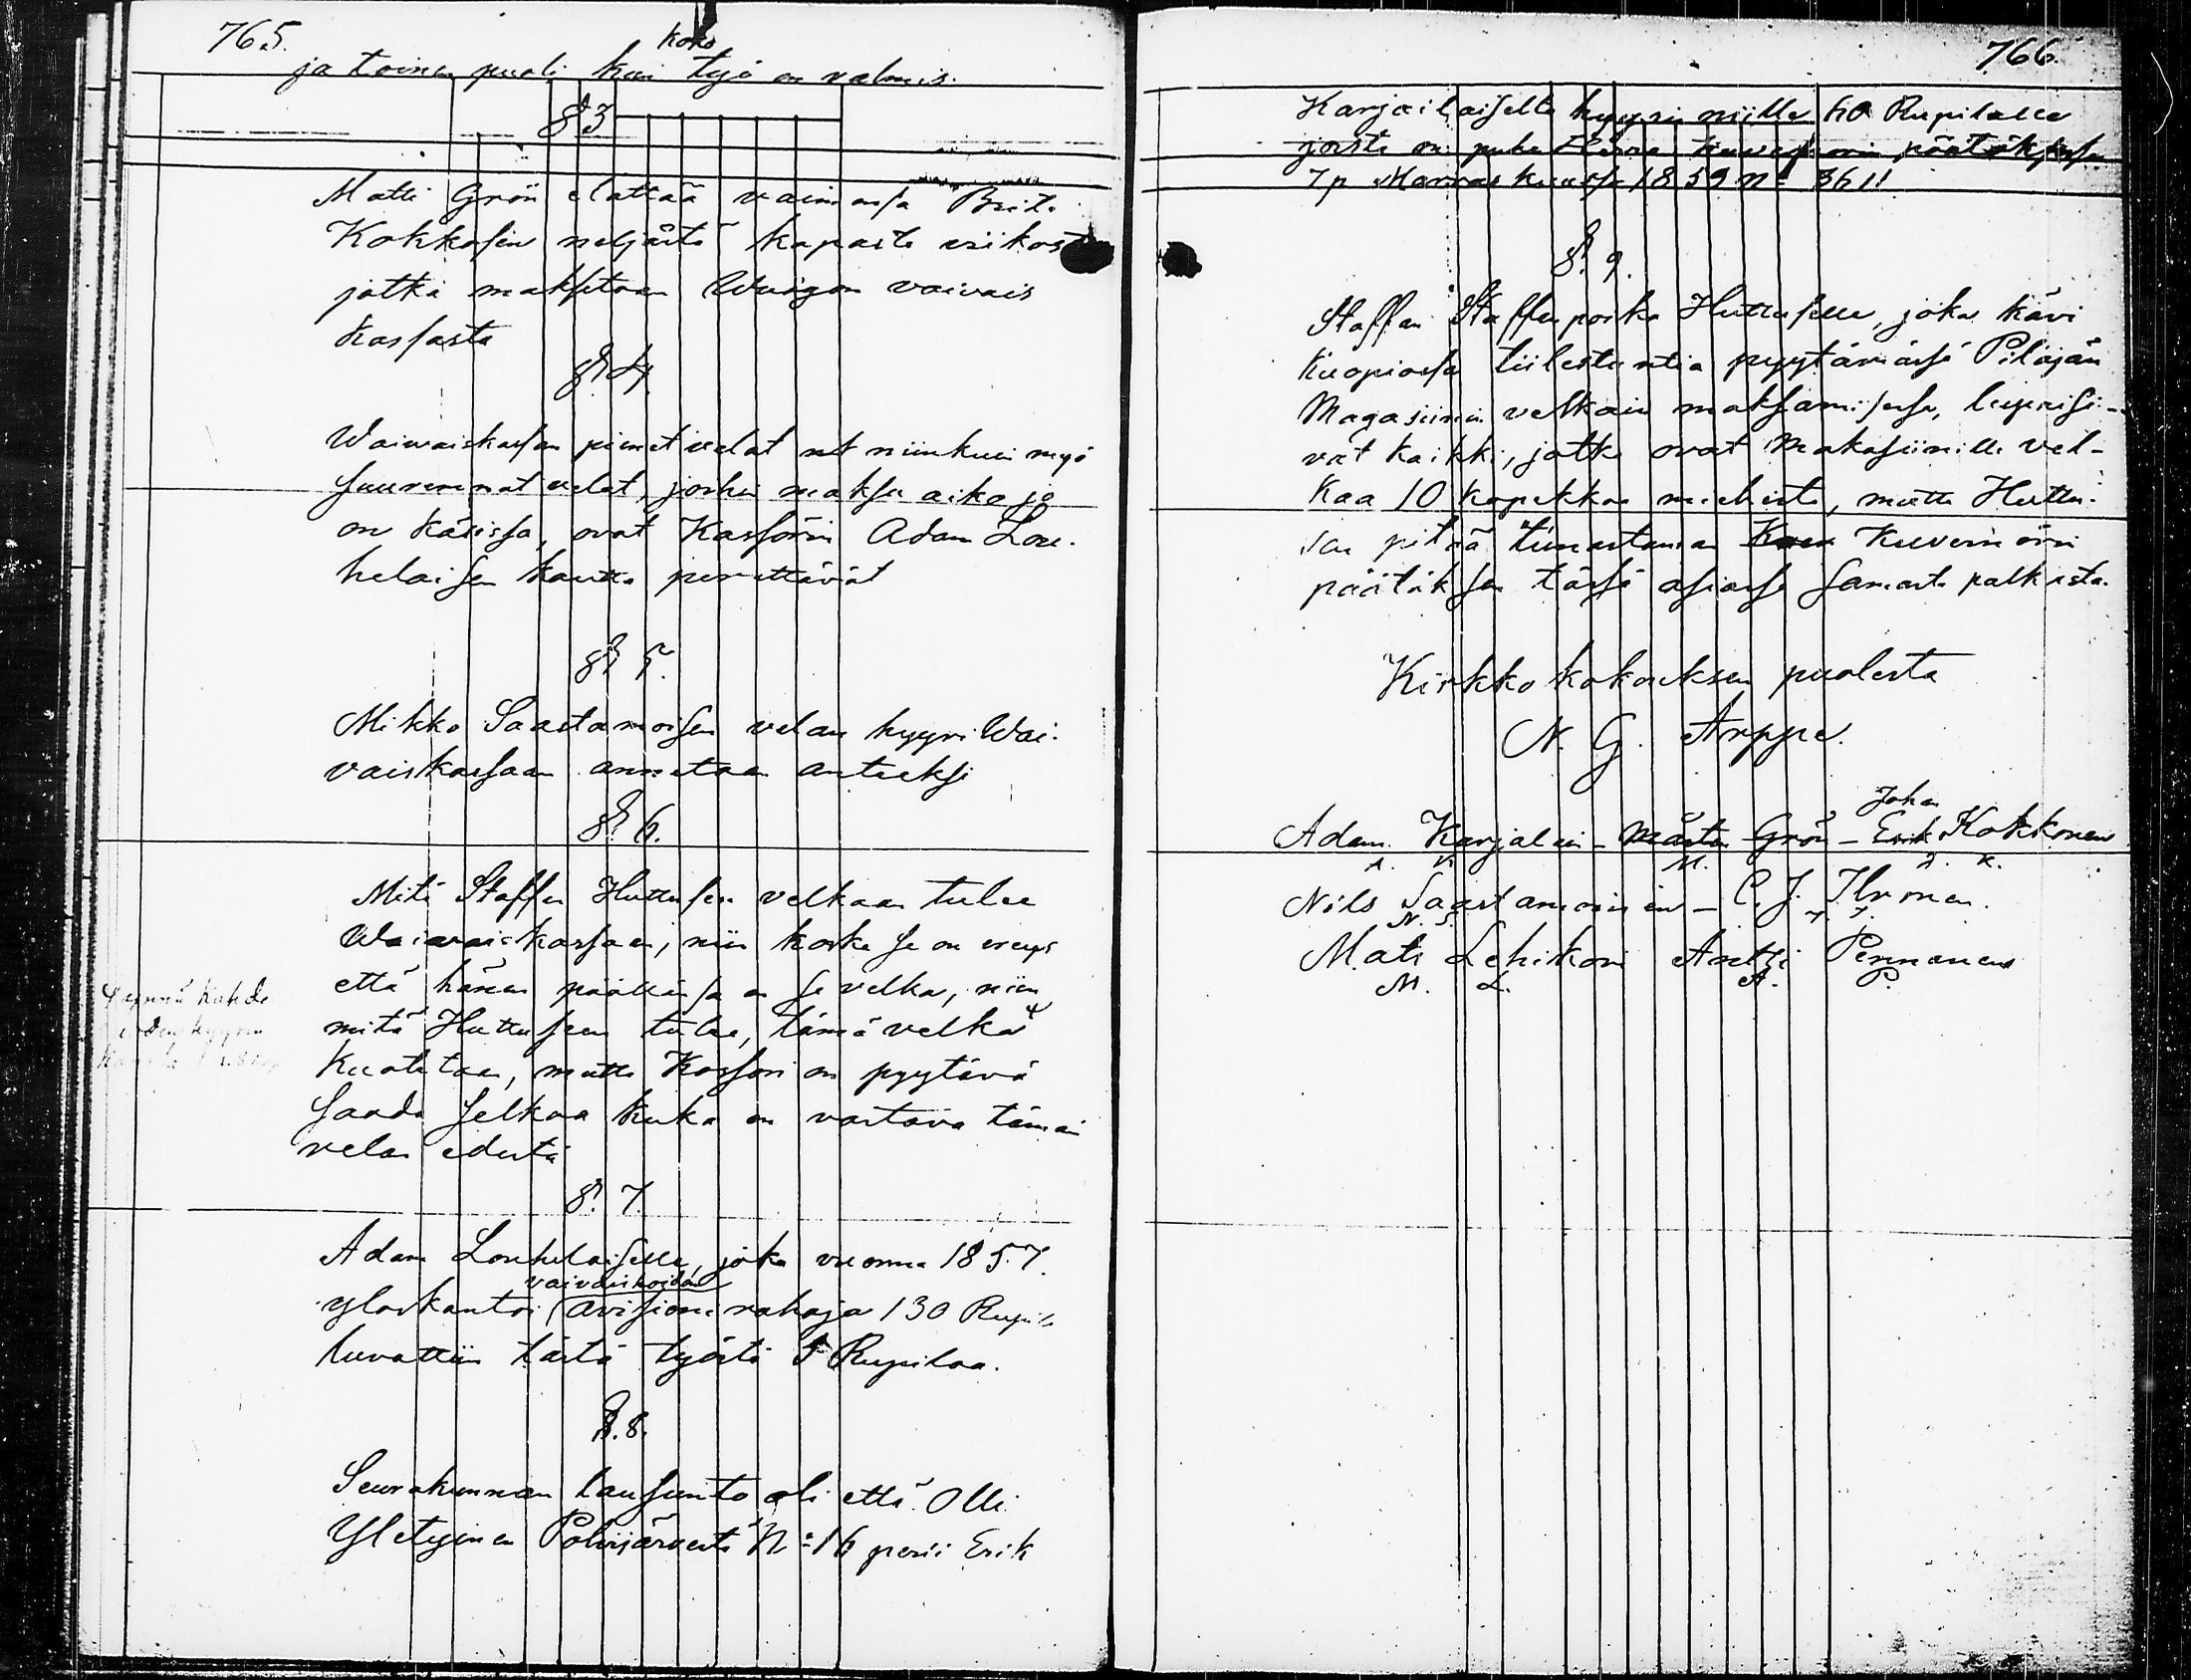 765.
koko
ja toinen puoli kuin työ on valmis.
§ 3
Matti Grön elättää vaimonsa Brita
Kokkosen neljästä kapasta viikosta
jotka maksetaan Waivais
kassasta
§. 4.
Waivaiskassan pienet velat nt niinkuin myö
suuremmat velat, joihin maksu aika jo
on käsissä, ovat Kassörin Adam Lou-
helaisen kautta perittävät
§. 5.
Mikko Saastamoisen velan hyyri Wai-
vaiskassaan annetaan anteeksi
§. 6.
Mitä Staffan Huttusen velkaan tulee
Waivaiskassaan, niin koska se on
että hänen päällänsä on se velka, niin
mitä Huttuseen tulee, tämä velka
kuoletetaan, mutta Kassöri on pyytävä
saada selkoa kuka on vastaava tämän
velan edestä
§. 7.
Adam Louhelaiselle, joka vuonna 1857.
vaivaishoidon
ylöskantoi avisioni rahoja 130 Rupila
luvattiin tästä työstä 5 Rupilaa.
§. 8.
Seurakunnan lausunto oli että Olli
Yletyinen Polvijärveltä No 16 perii Erik
766.
Karjalaiselle hyyrin niille 60 Rupilalle
joista on puhe Herra Kuvernörin päätöksessä
7 p Marraskuussa 1859 No 3611
§. 9.
Staffan Staffanpoika Huttuselle, joka kävi
Kuopiossa tiilestuntia pyytämässä Pitäjän
Magasiinin velkain maksamisessa, lupaisi-
vat kaikki, jotka ovat Makasiinille vel-
kaa 10 kopekkaa miehestä, mutta Huttu-
sen pitää lunastaman Kuvernörin
päätöksen tässä asiassa samasta palkasta.
Kirkkokokouksen puolesta
N. G. Arppe.
Johan
Adam Karjalain - Mårten Grön - Erik Kokkonen
A. K. M. J. K.
Nils Saastamoinen - C. J. Ilvonen.
N. S.
Mats Lehikoin Antti Pennanen
M. L. A. P.